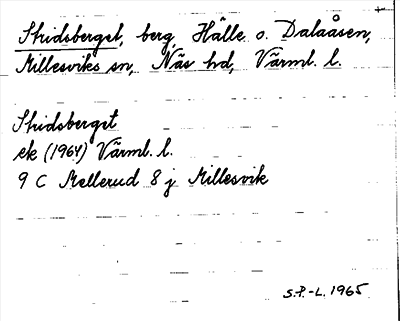 Stridsberget, berg, Hälle o. Dalaåsen,
Millesviks sn, Näs hd, Värml. l.
Stridsberget
ek (1964) Värml. l.
9 C Mellerud 8 j Millesvik
S.P.-L. 1965